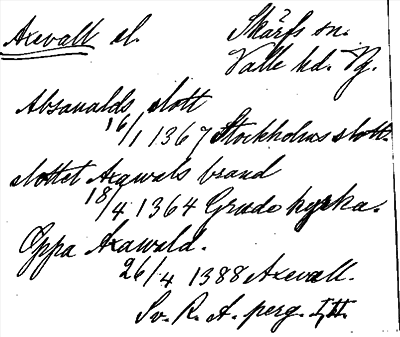 Axevall sl. Skärfs sn.
Valle hd. Vg.
Absaualds slott
16/1 1367 Stockholms slott.
slottet Axawals brand
18/4 1364 Grudo kyrka.
Oppa Axawald.
26/4 1388 Axevall.
Sv. R. A. perg.